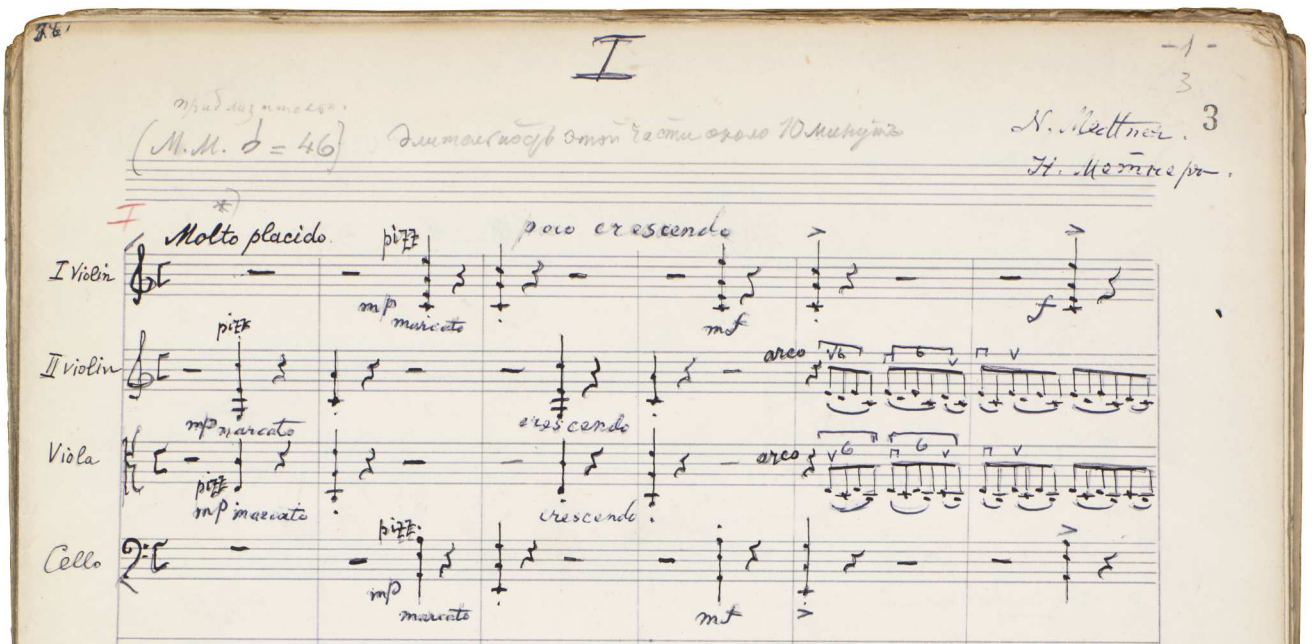 I
-1-
3
приблизительно.
(M.M. = 46) Длительность этой части около 10 минутъ
N. Medtner. 3
Н. Метнеръ.
I *)
Molto placido. pizz poco crescendo
I Violin
mp marcato mf f
pizz
II violin arco 6 6
mp marcato crescendo
Viola arco 6 6
pizz
mp marcato crescendo
pizz.
Cello
mp
marcato mf